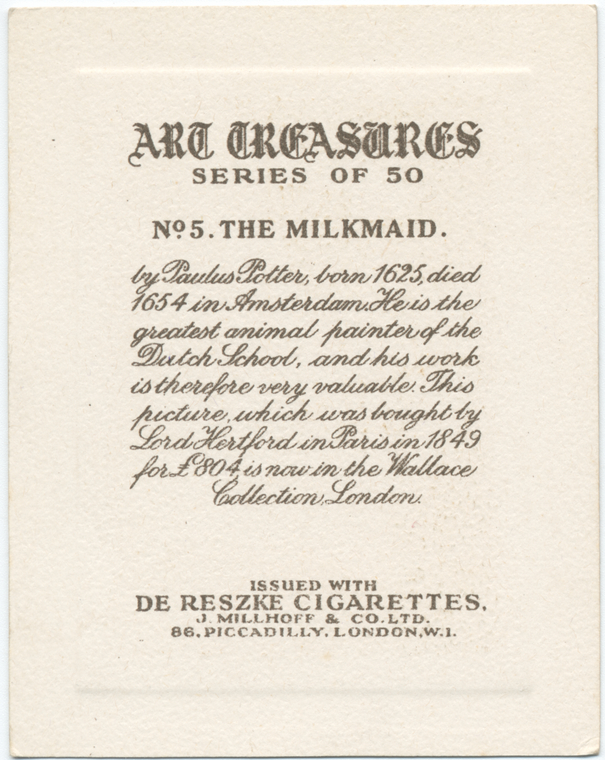 ART TREASURES
SERIES OF 50
Nº 5. THE MILKMAID.
by Paulus Potter, born 1625, died
1654 in Amsterdam. He is the
greatest animal painter of the
Dutch School, and his work
is therefore very valuable. This
picture, which was bought by
Lord Hertford in Paris in 1849
for £804, is now in the Wallace
Collection, London.
ISSUED WITH
DE RESZKE CIGARETTES,
J. MILLHOFF & CO. LTD.
86, PICCADILLY, LONDON, W.1.